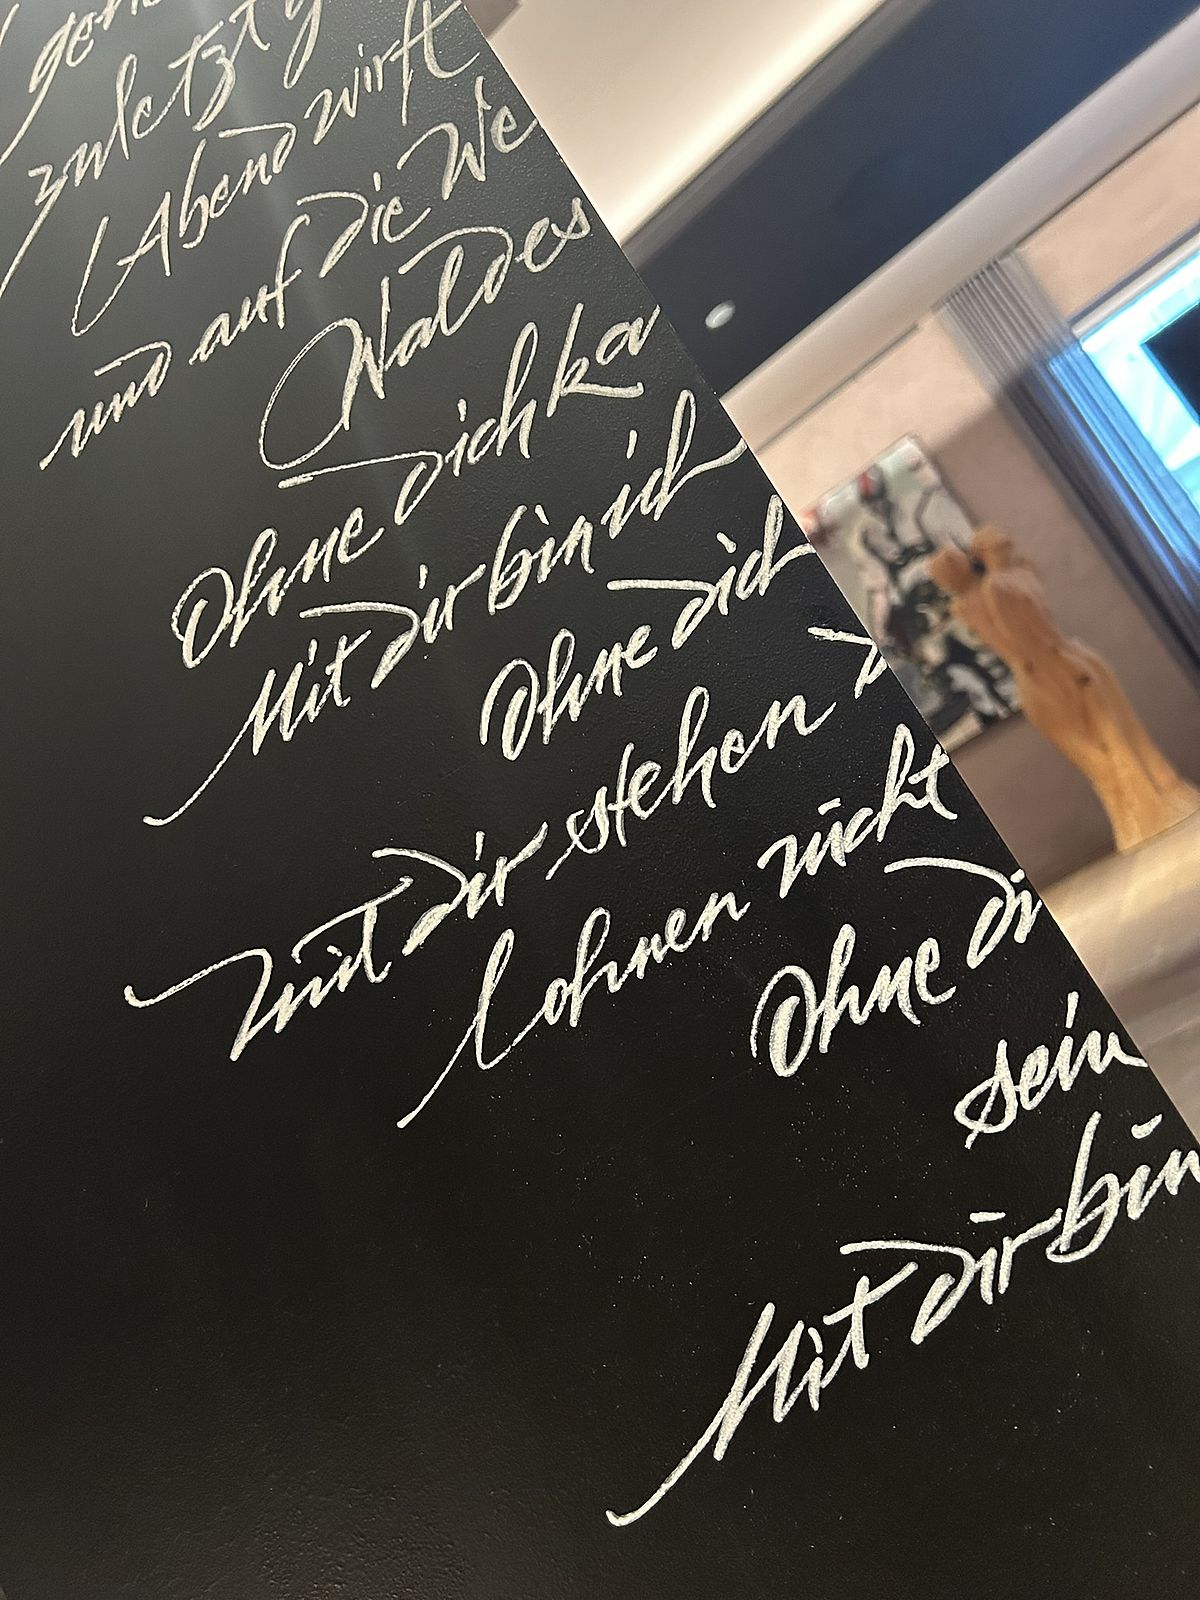 zuletzt
Abend wirft
und auf die We
Waldes
Ohne dich ka
Mit dir bin ich
Ohne dich
mit dir stehen d
Lohnen nicht
Ohne di
sein
Mit dir bin